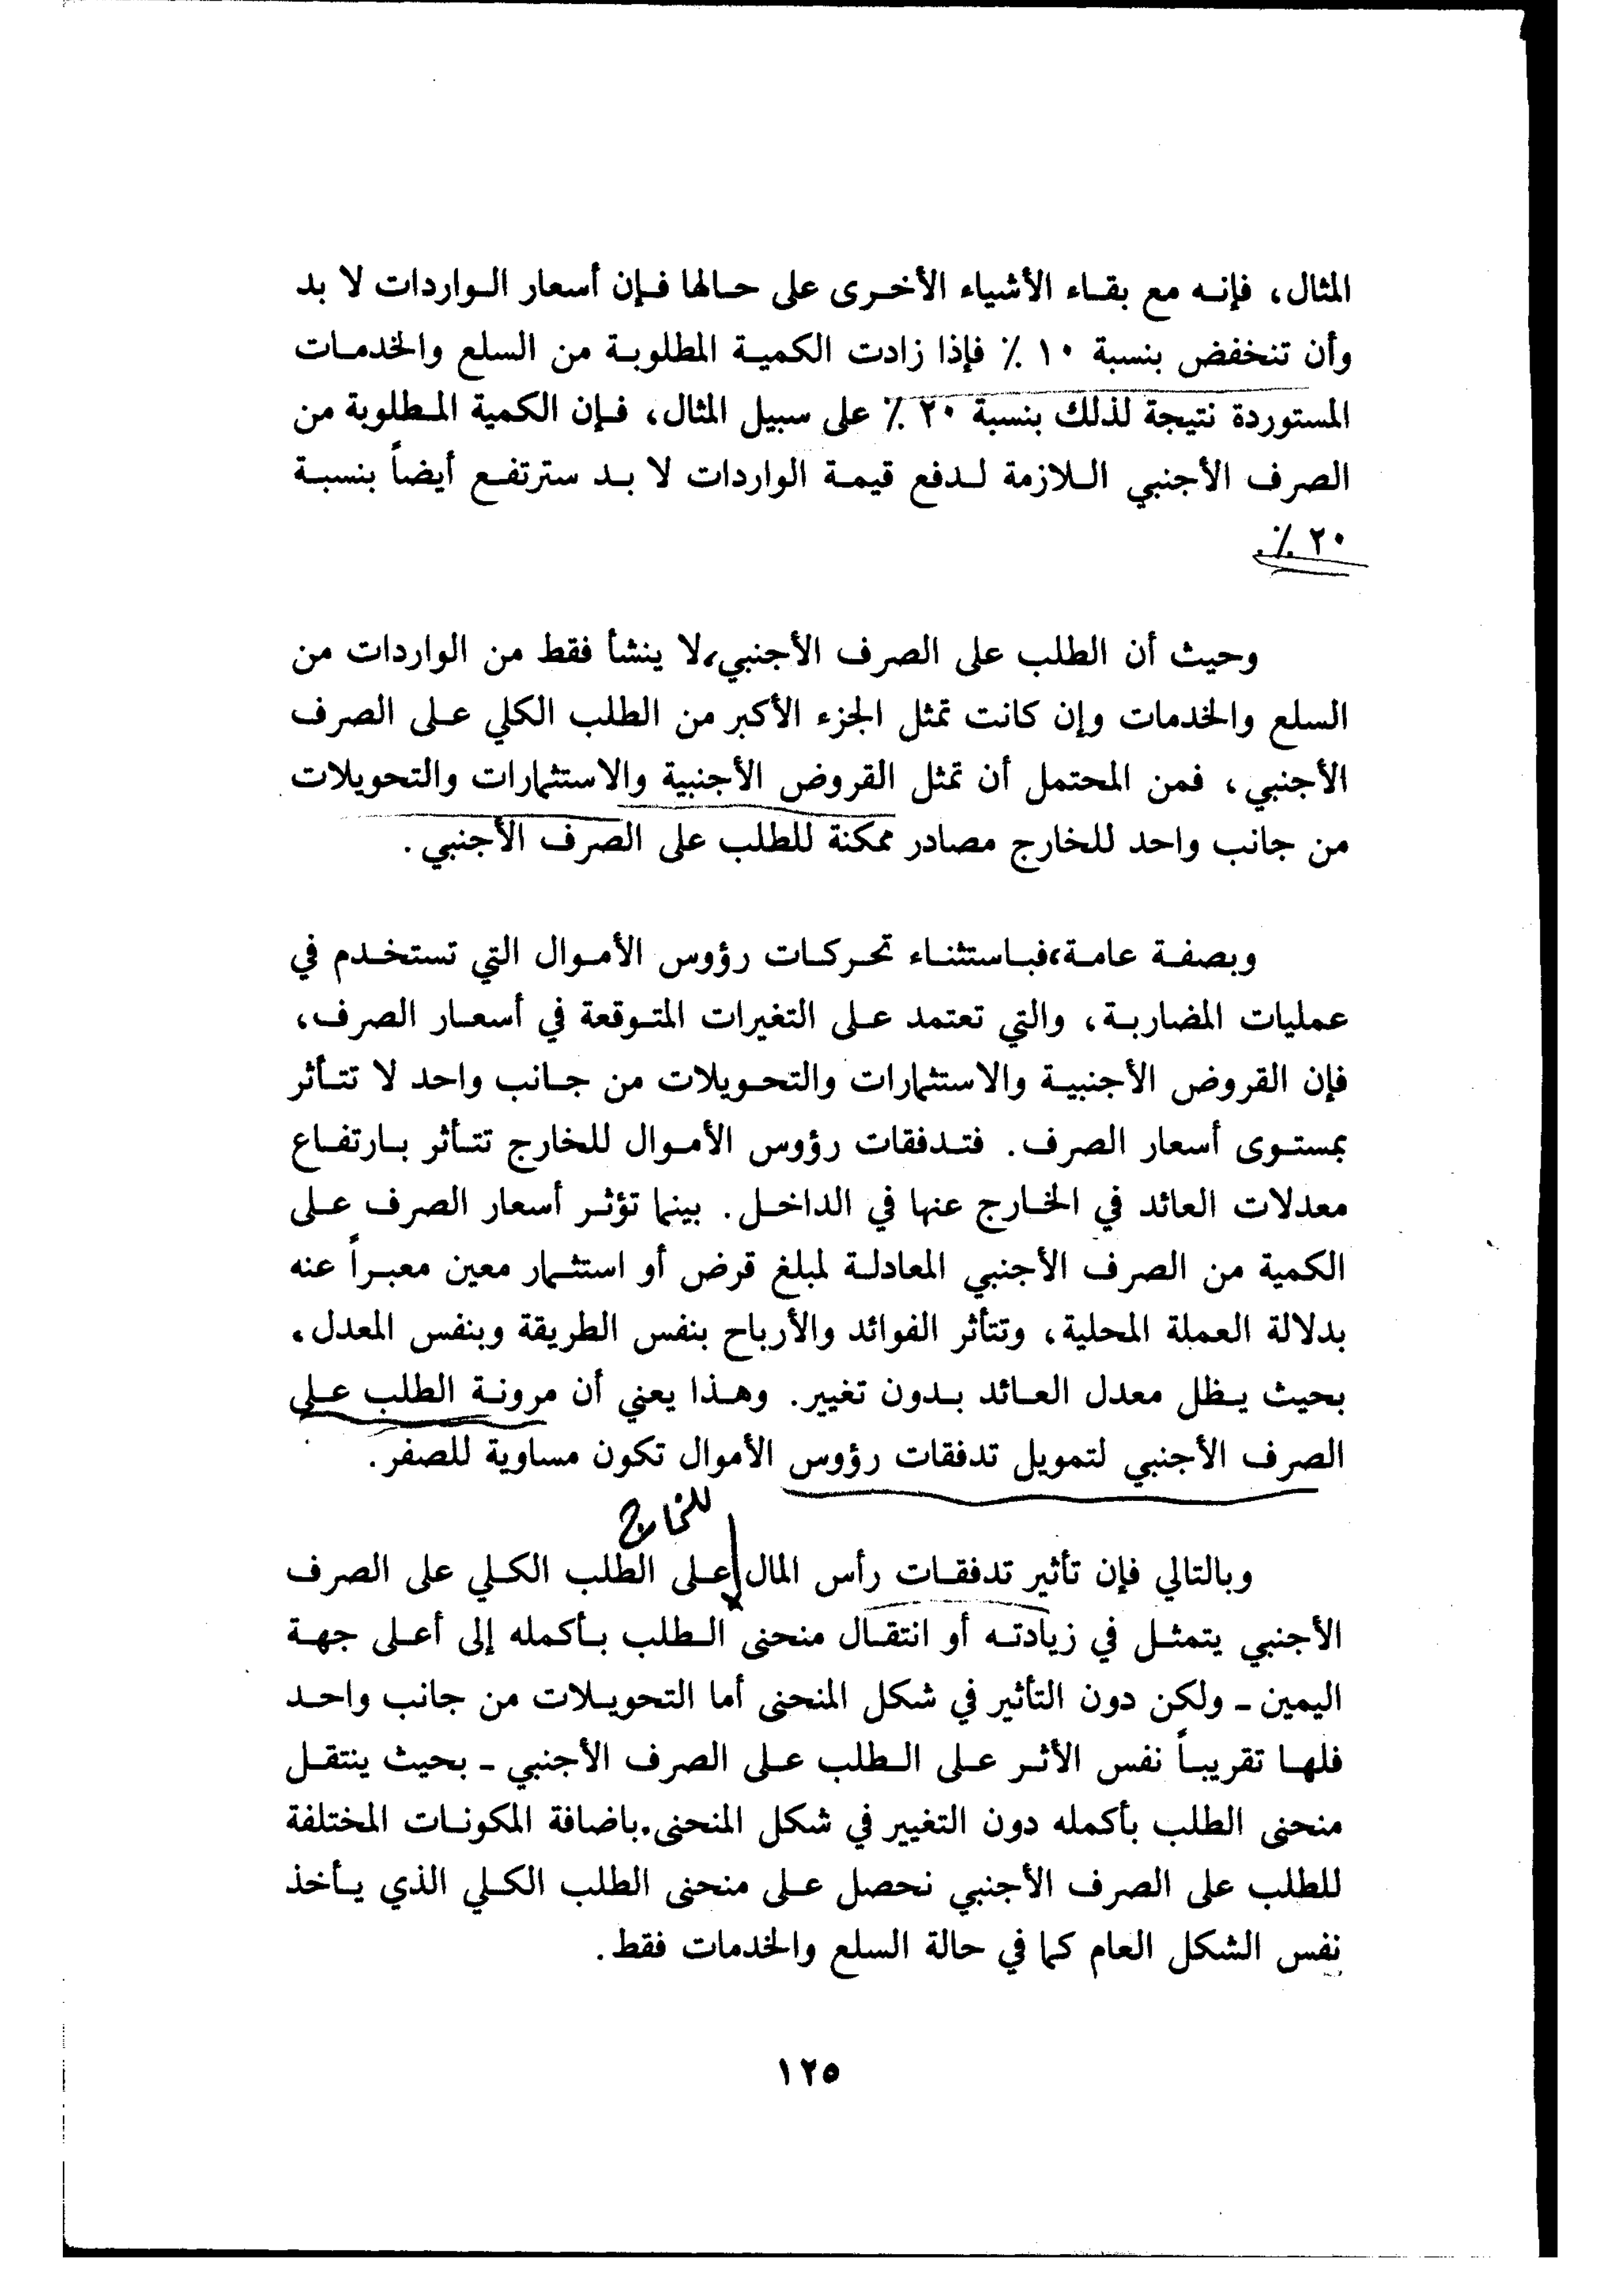 المثال، فإنه مع بقاء الأشياء الأخرى على حالها فإن أسعار الواردات لا بد
وأن تنخفض بنسبة ١٠ ٪ فإذا زادت الكمية المطلوبة من السلع والخدمات
المستوردة نتيجة لذلك بنسبة ٢٠ ٪ على سبيل المثال، فإن الكمية المطلوبة من
الصرف الأجنبي اللازمة لدفع قيمة الواردات لا بد سترتفع أيضاً بنسبة
٢٠ ٪.
وحيث أن الطلب على الصرف الأجنبي، لا ينشأ فقط من الواردات من
السلع والخدمات وإن كانت تمثل الجزء الأكبر من الطلب الكلي على الصرف
الأجنبي، فمن المحتمل أن تمثل القروض الأجنبية والاستثمارات والتحويلات
من جانب واحد للخارج مصادر ممكنة للطلب على الصرف الأجنبي.
وبصفة عامة، فباستثناء تحركات رؤوس الأموال التي تستخدم في
عمليات المضاربة، والتي تعتمد على التغيرات المتوقعة في أسعار الصرف،
فإن القروض الأجنبية والاستثمارات والتحويلات من جانب واحد لا تتأثر
بمستوى أسعار الصرف. فتدفقات رؤوس الأموال للخارج تتأثر بارتفاع
معدلات العائد في الخارج عنها في الداخل. بينما تؤثر أسعار الصرف على
الكمية من الصرف الأجنبي المعادلة لمبلغ قرض أو استثمار معين معبراً عنه
بدلالة العملة المحلية، وتتأثر الفوائد والأرباح بنفس الطريقة وبنفس المعدل،
بحيث يظل معدل العائد بدون تغيير. وهذا يعني أن مرونة الطلب على
الصرف الأجنبي لتمويل تدفقات رؤوس الأموال تكون مساوية للصفر.
للخارج
وبالتالي فإن تأثير تدفقات رأس المال على الطلب الكلي على الصرف
الأجنبي يتمثل في زيادته أو انتقال منحنى الطلب بأكمله إلى أعلى جهة
اليمين - ولكن دون التأثير في شكل المنحنى أما التحويلات من جانب واحد
فلها تقريباً نفس الأثر على الطلب على الصرف الأجنبي - بحيث ينتقل
منحنى الطلب بأكمله دون التغيير في شكل المنحنى. باضافة المكونات المختلفة
للطلب على الصرف الأجنبي نحصل على منحنى الطلب الكلي الذي يأخذ
نفس الشكل العام كما في حالة السلع والخدمات فقط.
١٢٥